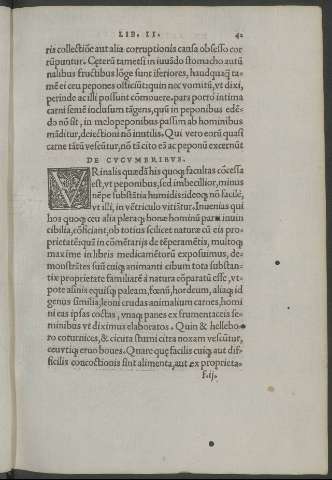 LIB. II. 42
ris collectiõe aut alia corruptionis causa obsesso cor
rũpuntur. Ceterũ tametsi in iuuãdo stomacho autũ
nalibus fructibus lõge sunt iferiores, haudquaq̃ ta-
mẽ ei ceu pepones officiũt: quin nec vomitũ, vt dixi,
perinde ac illi possunt cõmouere. pars porrò intima
carni semẽ inclusum tãgens, quũ in peponibus edẽ-
do nõ sit, in melopeponibus passim ab hominibus
mãditur, deiectioni nõ inutilis. Qui vero eorũ quasi
carne tãtũ vescũtur, nõ tã cito eã ac peponũ excernũt
DE CVCVMERIBVS.
VRinalis quædã his quoq; facultas cõcessa
est, vt peponibus, sed imbecillior, minus
nẽpe substãtia humidis: ideoq; nõ facilè,
vt illi, in vẽtriculo vitiãtur. Inuenias qui
hos quoq; ceu alia pleraq; bonæ hominũ parti inuin
cibilia, cõficiant, ob totius scilicet naturæ cũ eis pro-
prietatẽ: quã in cõmẽtarijs de tẽperamẽtis, multoq;
maxime in libris medicamẽtorũ exposuimus, de-
monstrãtes suũ cuiq; animanti cibum tota substan-
tiæ proprietate familiarẽ à natura cõparatũ esse, vt-
pote asinis equisq; paleam, fœnũ, hordeum, aliaq; id
genus similia, leoni crudas animalium carnes, homi
ni eas ipsas coctas, vnaq; panes ex frumentaceis se-
minibus vt diximus elaboratos. Quin & hellebo-
ro coturnices, & cicuta sturni citra noxam vescũtur,
ceu vtiq; eruo boues. Quare que facilis cuiq; aut dif-
ficilis concoctionis sint alimenta, aut ex proprieta-
F.ij.